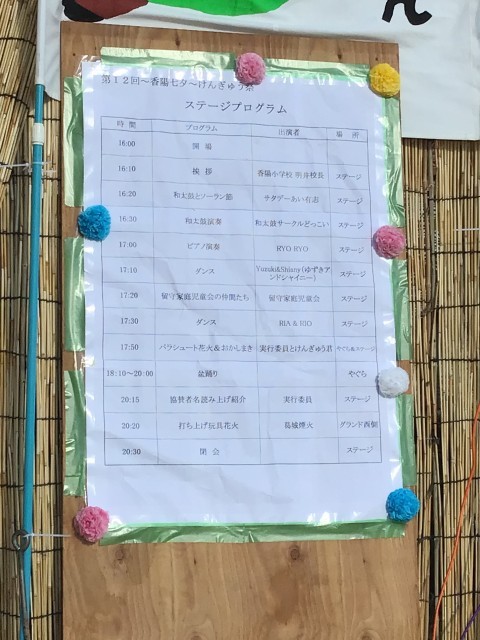 第12回～香陽七夕～けんぎゅう祭
ステージプログラム
時 間 プログラム 出演者 場 所
16:00 開 場
16:10 挨 拶 香陽小学校 明井校長 ステージ
16:20 和太鼓とソーラン節 サタデーあい有志 ステージ
16:30 和太鼓演奏 和太鼓サークルどっこい ステージ
17:00 ピアノ演奏 RYO RYO ステージ
17:10 ダンス Yuzuki&Shinny(ゆずきアンドシャイニー) ステージ
17:20 留守家庭児童会の仲間たち 留守家庭児童会 ステージ
17:30 ダンス RIA & IO ステージ
17:50 パラシュート花火&おかしまき 実行委員とけんぎゅう君 やぐら&ステージ
18:10～20:00 盆踊り やぐら
20:15 協賛者名読み上げ紹介 実行委員 ステージ
20:20 打ち上げ玩具花火 葛城煙火 グランド西側
20:30 閉 会 ステージ